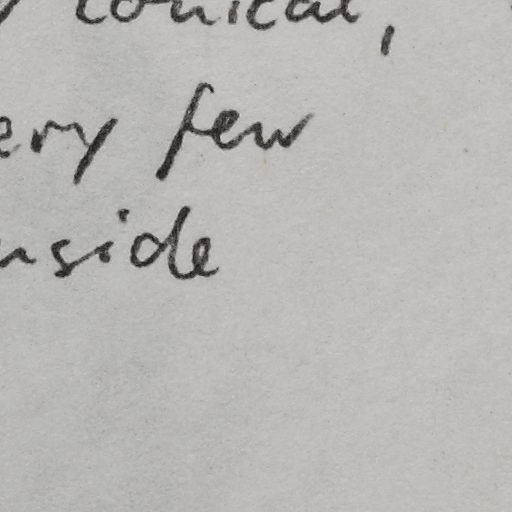 conical,
ery few
nside